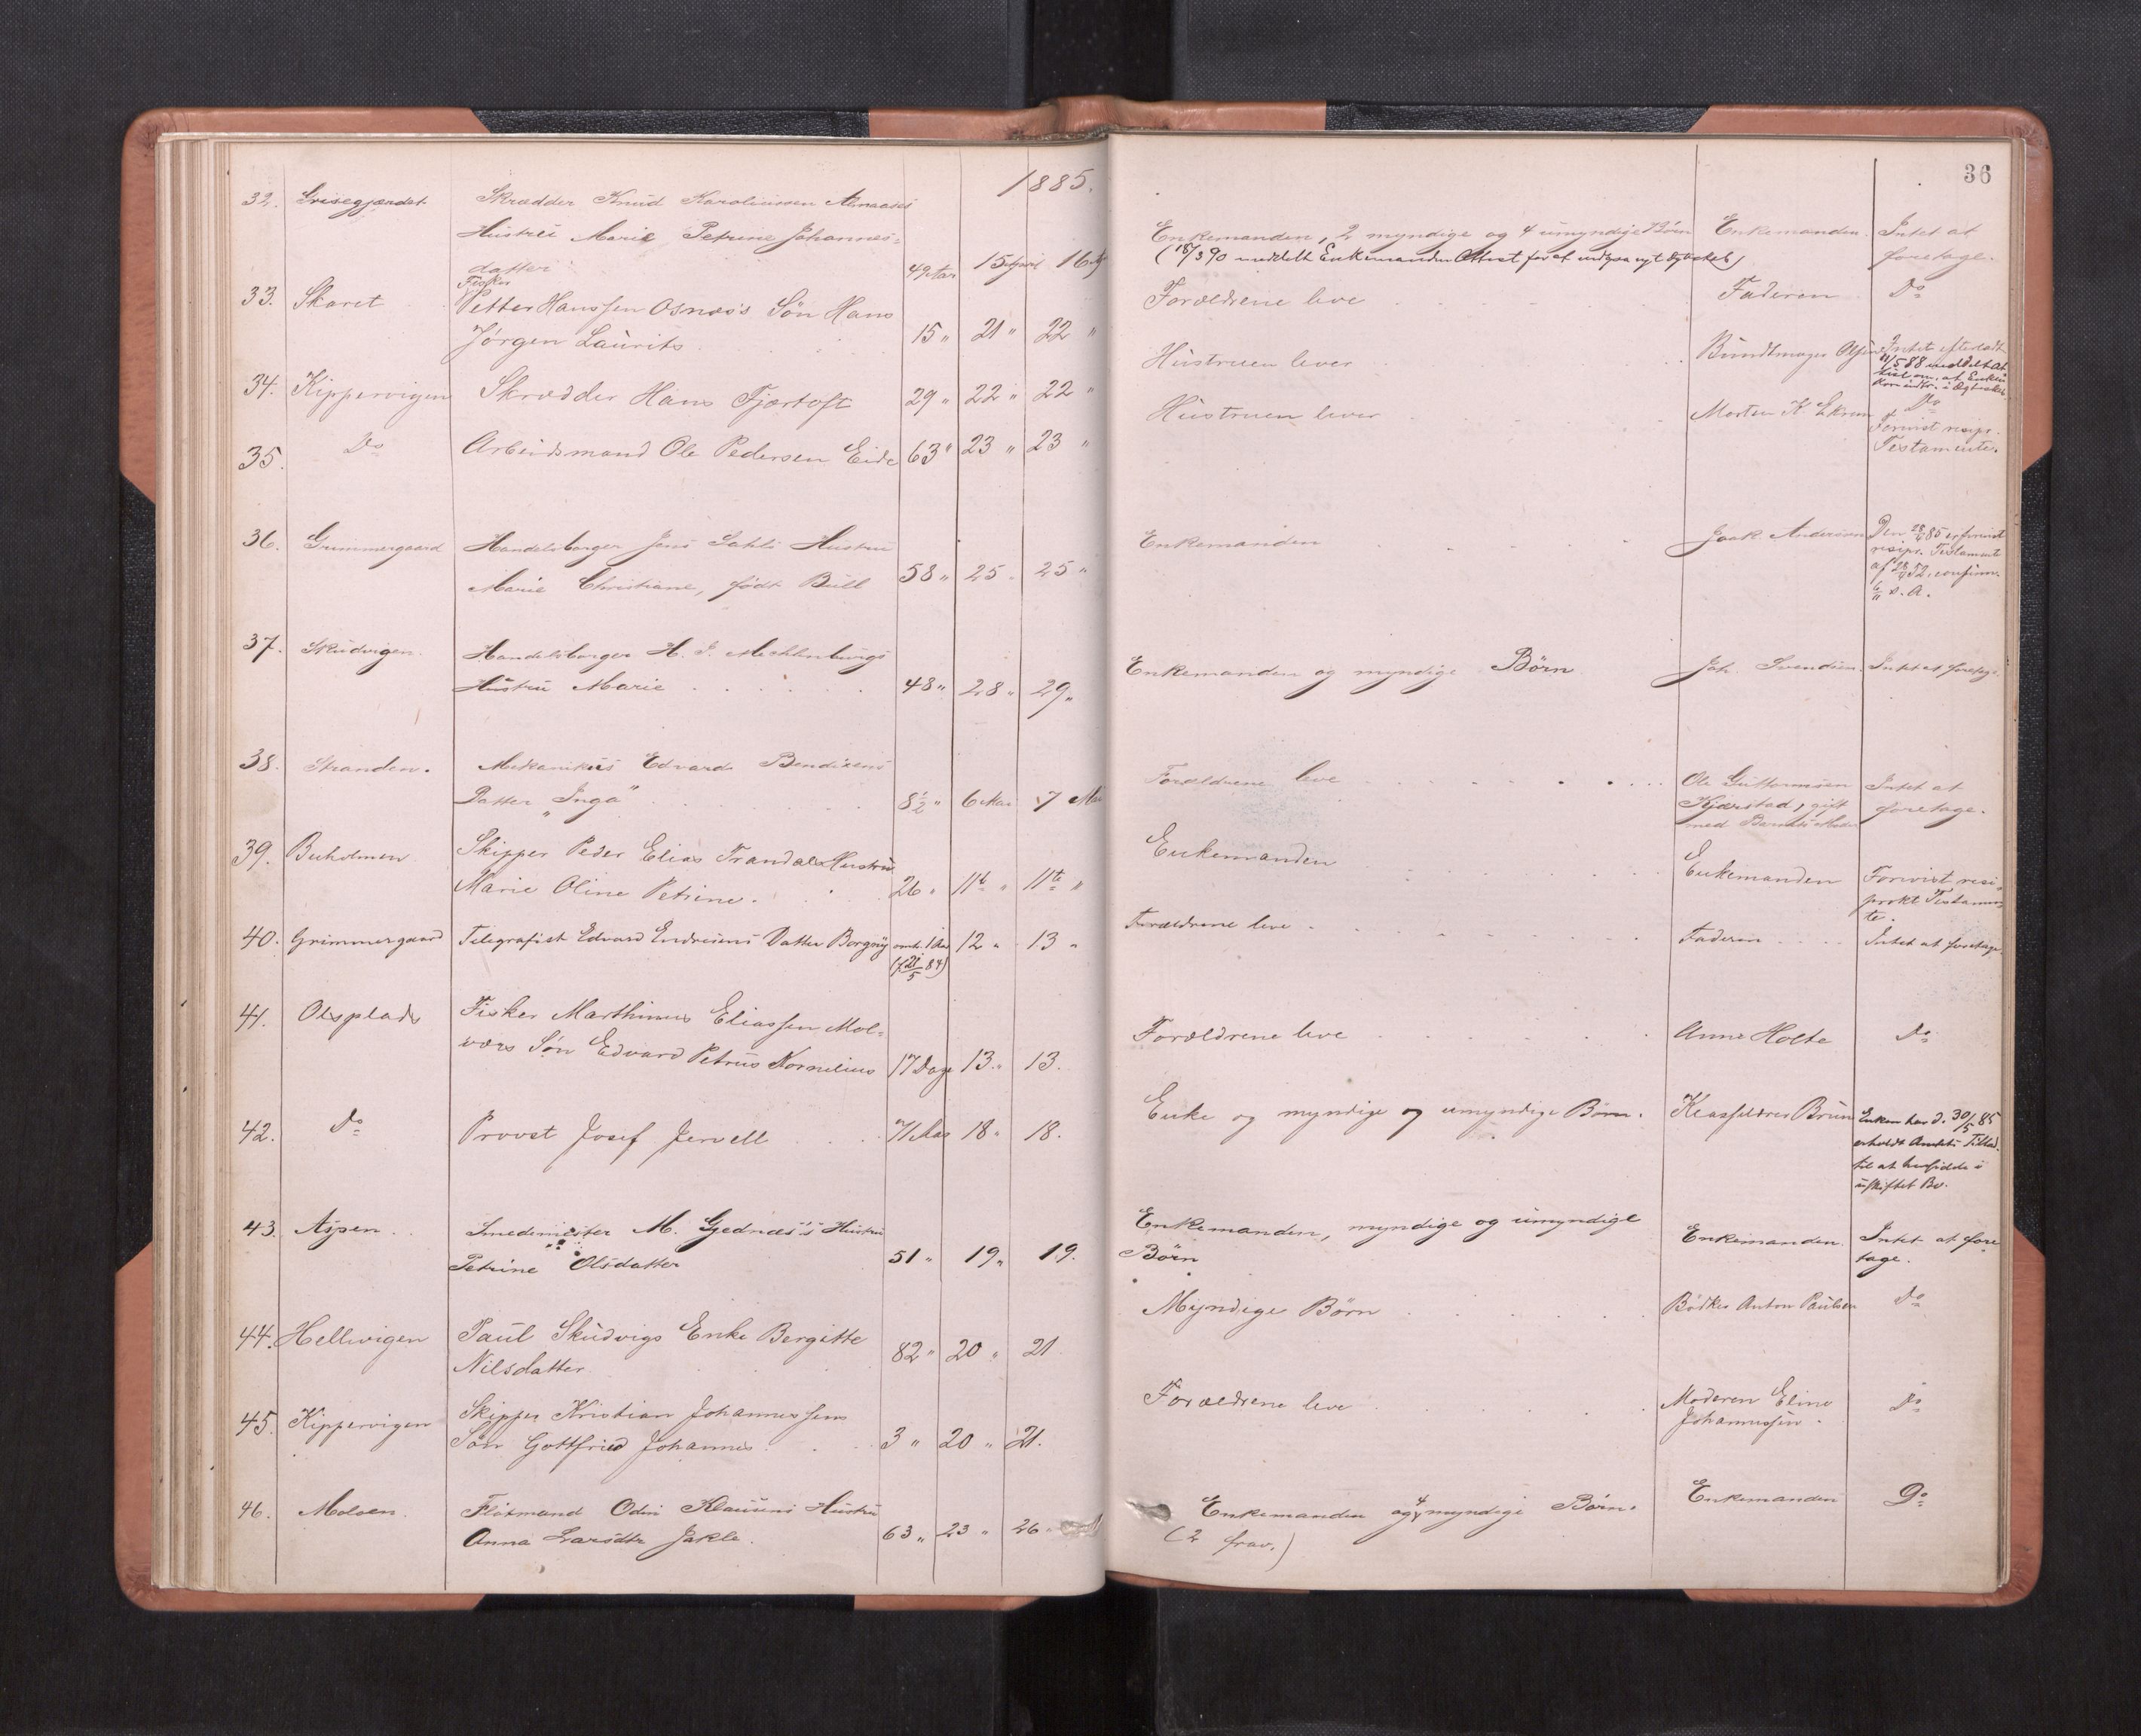 1885.
36
32. Grisegjærdet Skrædder Knud Karoliussen Almaases
Hustru Marie Petrine Johannes-
datter 49 Aar 15 April 16 Enkemanden, 2 myndige og 4 umyndige Børn Enkemanden Intet at
(18/3 90 meddelt Enkemanden Attest for at indgaa nyt Ægteskab) foretage.
33. Skaret Fisker
Petter Hanssen Osnæs's Søn Hans
Jørgen Laurits 15 " 21 " 22 " Forældrene leve Faderen Do
34. Kippervigen Skrædder Hans Fjærtoft 29 " 22 " 22 " Hustruen lever Bundtmager Intet efterladt
11/5 88 meddelt at
35. Do Arbeidsmand Ole Pedersen Eide 63 " 23 " 23 " Hustruen lever Morten K. Do
Forevist resipr.
Testamente.
36. Grimmergaard Handelsborger Jens Dahls Hustru
Marie Christiane, født Bull 58 " 25 25 " Enkemanden Jaak. Andersen Den 28/4 85 er forevist
resipr. Testamente
af 28/4 52, confirm.
6/11 s. A.
37. Skudvigen Handelsborger H. J. Mechlenburgs
Hustru Marie 48 " 28 " 29 " Enkemanden og myndige Børn Joh. Svendsen Intet at foretage.
38. Stranden. Mekanikus Edvard Bendixens
Datter "Inga" 8½ " 6 Mai 7 Mai Forældrene leve Ole Guttormsen Intet at
Kjærstad, gift foretage.
med Barnets Moder
39. Buholmen Skipper Peder Elias Trandals Hustru
Marie Oline Petrine. 26 " 11te " 11te " Enkemanden Enkemanden Forevist resi-
prokt Testamen-
te.
40. Grimmergaard Telegrafist Edvard Endresens Datter Borgny omtr. 1 Aar 12 " 13 " Forældrene leve Faderen Intet at foretage
(f. 21/5 84)
41. Olsplads Fisker Marthinus Eliassen Mol-
værs Søn Edvard Petrus Kornelius 17 Dage 13. 13. Forældrene leve Anne Holte Do
42. Do Provst Josef Jervell 71 Aar 18 " 18. Enke og myndige og umyndige Børn. Brun Enken har d. 30/5 85
erholdt Amtets Tillad.
til at hensidde i
uskiftet Bo.
43. Aspen Smedemester M. Gjednæs's Hustru
Petrine Olsdatter 51 " 19 " 19. Enkemanden, myndige og umyndige
Børn Enkemanden. Intet at fore
tage.
44. Hellevigen Paul Skudvigs Enke Bergitte
Nilsdatter 82 " 20 " 21 Myndige Børn Bødker Anton Paulsen Do
45. Kippervigen Skipper Kristian Johannessens
Søn Gottfried Johannes 3 " 20 " 21. Forældrene leve Moderen Eline
Johannessen. Do
46. Moloen. Flotmand Odin Klausens Hustru
Anna Larsdtr Jakle. 63 " 23 " 26 Enkemanden og 4 myndige Børn. Enkemanden Do
(2 frav.)